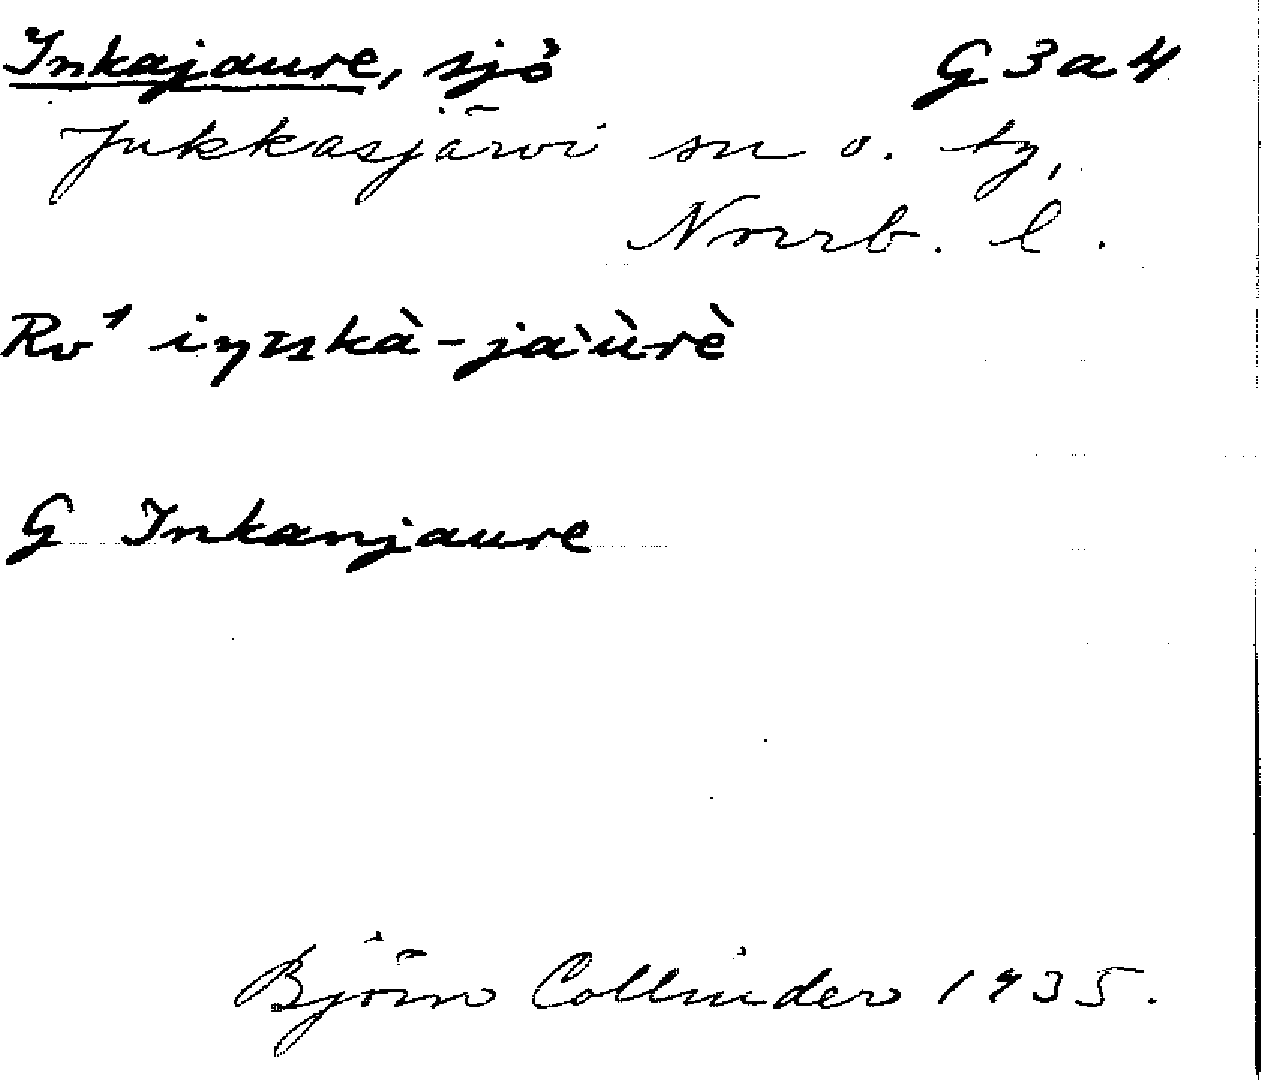 Inkajaure, sjö G 3 a 4
Jukkasjärvi sn o. tg,
Norrb. l.
Rv¹
G Inkanjaure
Björn Collinder 1935.